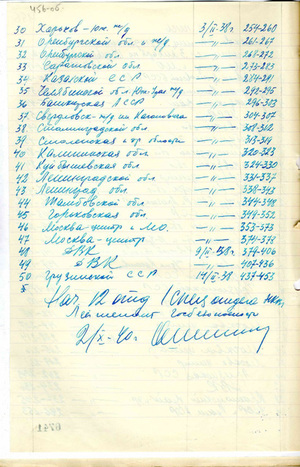 456-об
30 Харьков - Юж. ж/д 3/II-38г. 254-260
31 Оренбургской обл и ж/д —"— 261-267
32 Оренбургской обл —"— 268-272
33 Саратовской обл —"— 273-283
34 Казахской ССР —"— 284-291
35 Челябинской обл Юж-Урал ж/д —"— 292-295
36 Башкирская АССР —"— 296-303
37 Свердловск - ж/д им Кагановича —"— 304-307
38 Сталинградской обл —"— 308-312
39 Смоленская обл —"— 313-319
40 Калининская обл —"— 320-323
41 Куйбышевская обл —"— 324-330
42 Ленинградской обл —"— 331-337
43 Ленинград обл —"— 338-343
44 Тамбовской обл —"— 344-348
45 Горьковская обл —"— 349-352
46 Москва-центр и М.О. —"— 353-573
47 Москва-центр —"— 574-578
48 ДВК 9/II-38г. 579-406
49 ДВК —"— 407-436
50 Грузинской ССР 14/II-38г 437-453
5
Нач 12 отд 1 спецотдела НКВД
Лейтенант госбезопасности
2/IX-40г.